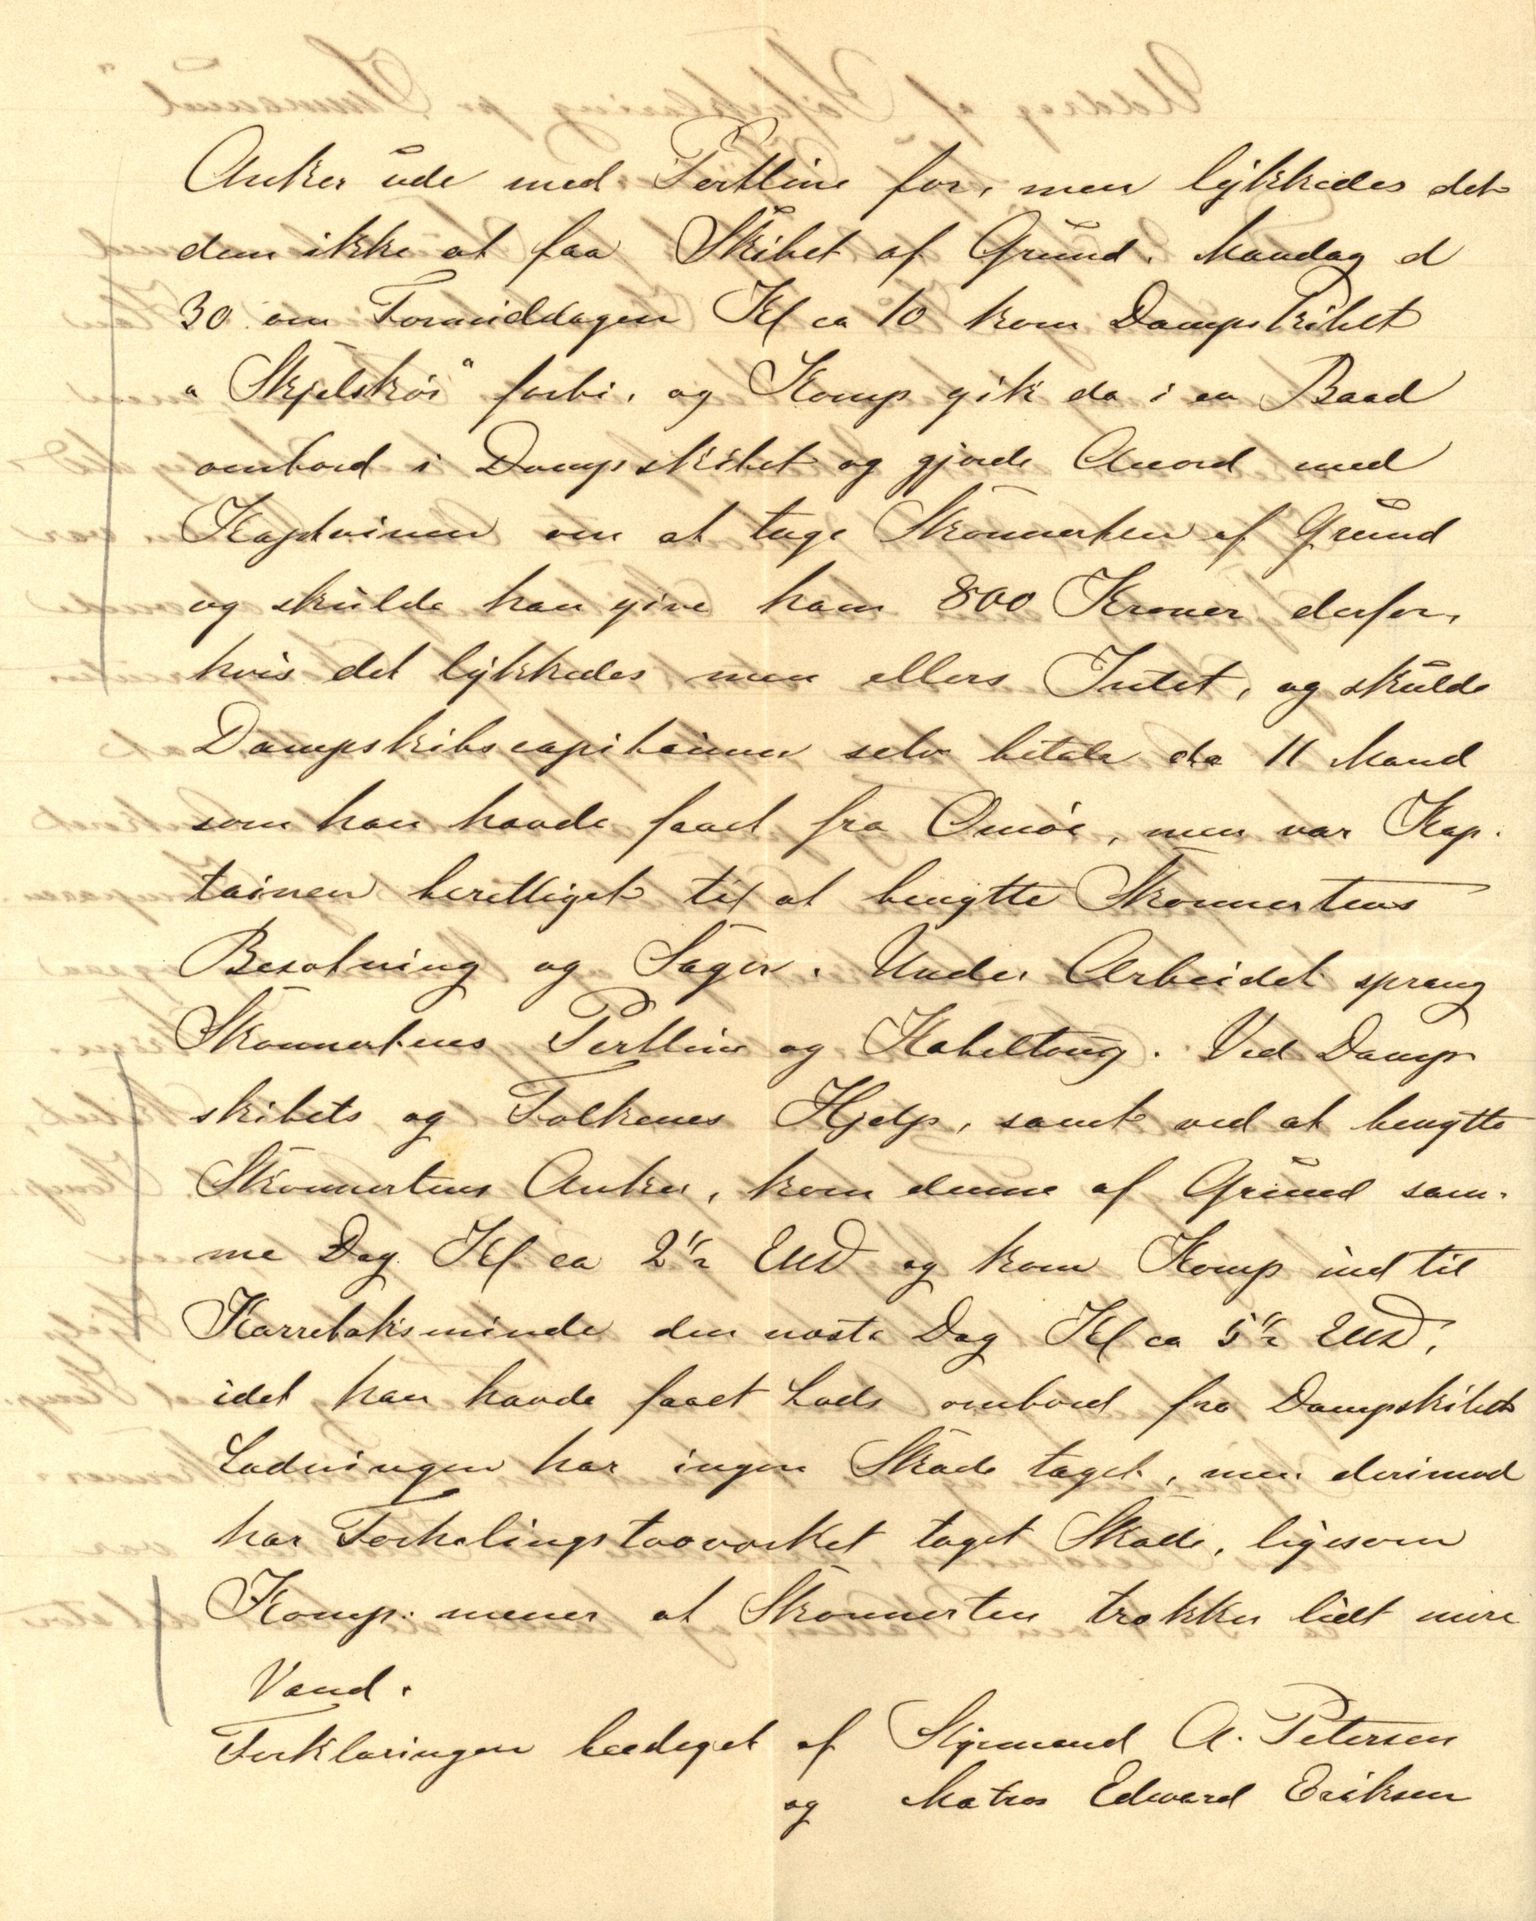 Anker ude med Pertline for, men lykkedes det
dem ikke at faa Skibet af Grund. Mandag d
30 om Formiddagen Kl ca 10 kom Dampskibet
"Skjelskør" forbi, og Komp gik da i en Baad
ombord i Dampskibet og gjorde Accord med
Kaptainen om at tage Skonnerten af Grund
og skulde han give ham 800 Kroner derfor,
hvis det lykkedes men ellers Intet, og skulde
Dampskibscapitainen selv betale de 11 Mand
som han havde faaet fra Omøe, men var Kap-
tainen berettiget til at benytte Skonnertens
Besætning og Sager. Under Arbeidet sprang
Skonnertens Pertline og Kabeltoug. Ved Damp-
skibets og Folkenes Hjelp, samt ved at benytte
Skonnertens Anker, kom denne af Grund sam-
me Dag Kl ca 2 1/2 EMD og kom Komp ind til
Karrebæksminde den næste Dag Kl ca 5 1/2 EMD,
idet han havde faaet Lods ombord fra Dampskibet
Ladningen har ingen Skade taget, men derimod
har Forhalingstaaværket taget Skade, ligesom
Komp. mener at Skonnerten trækker lidt mere
Vand.
Forklaringen beediget af Styrmand A. Petersen
og Matros Edward Eriksen